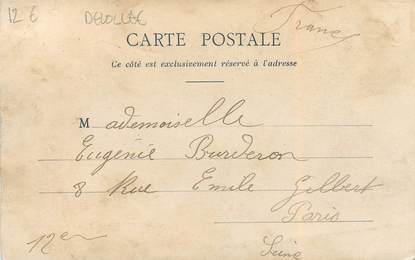 12 €
France
CARTE POSTALE
Ce côté est exclusivement réservé à l'adresse
Mademoiselle
Eugénie Burderon
8 Rue Emile Gilbert
Paris
12er
Seine